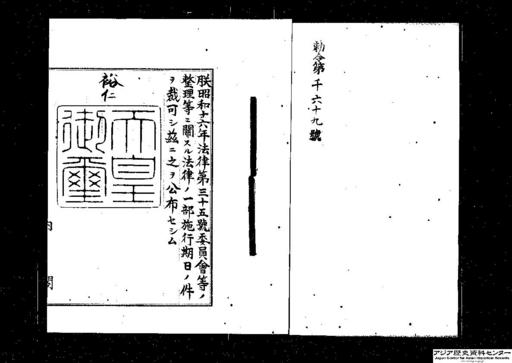 勅令第千六十九號
朕昭和十六年法律第三十五號委員會等ノ
整理等ニ關スル法律ノ一部施行期日ノ件
ヲ裁可シ茲ニ之ヲ公布セシム
裕仁
天皇
御璽
内閣
アジア歴史資料センター
Japan Center for Asian Historical Records